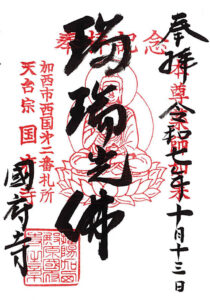 奉拝 令和七年十月十三日
本尊薬師如来
参拝記念
瑠璃光佛
加西市西国第二番札所
天台宗 国府寺
國府寺